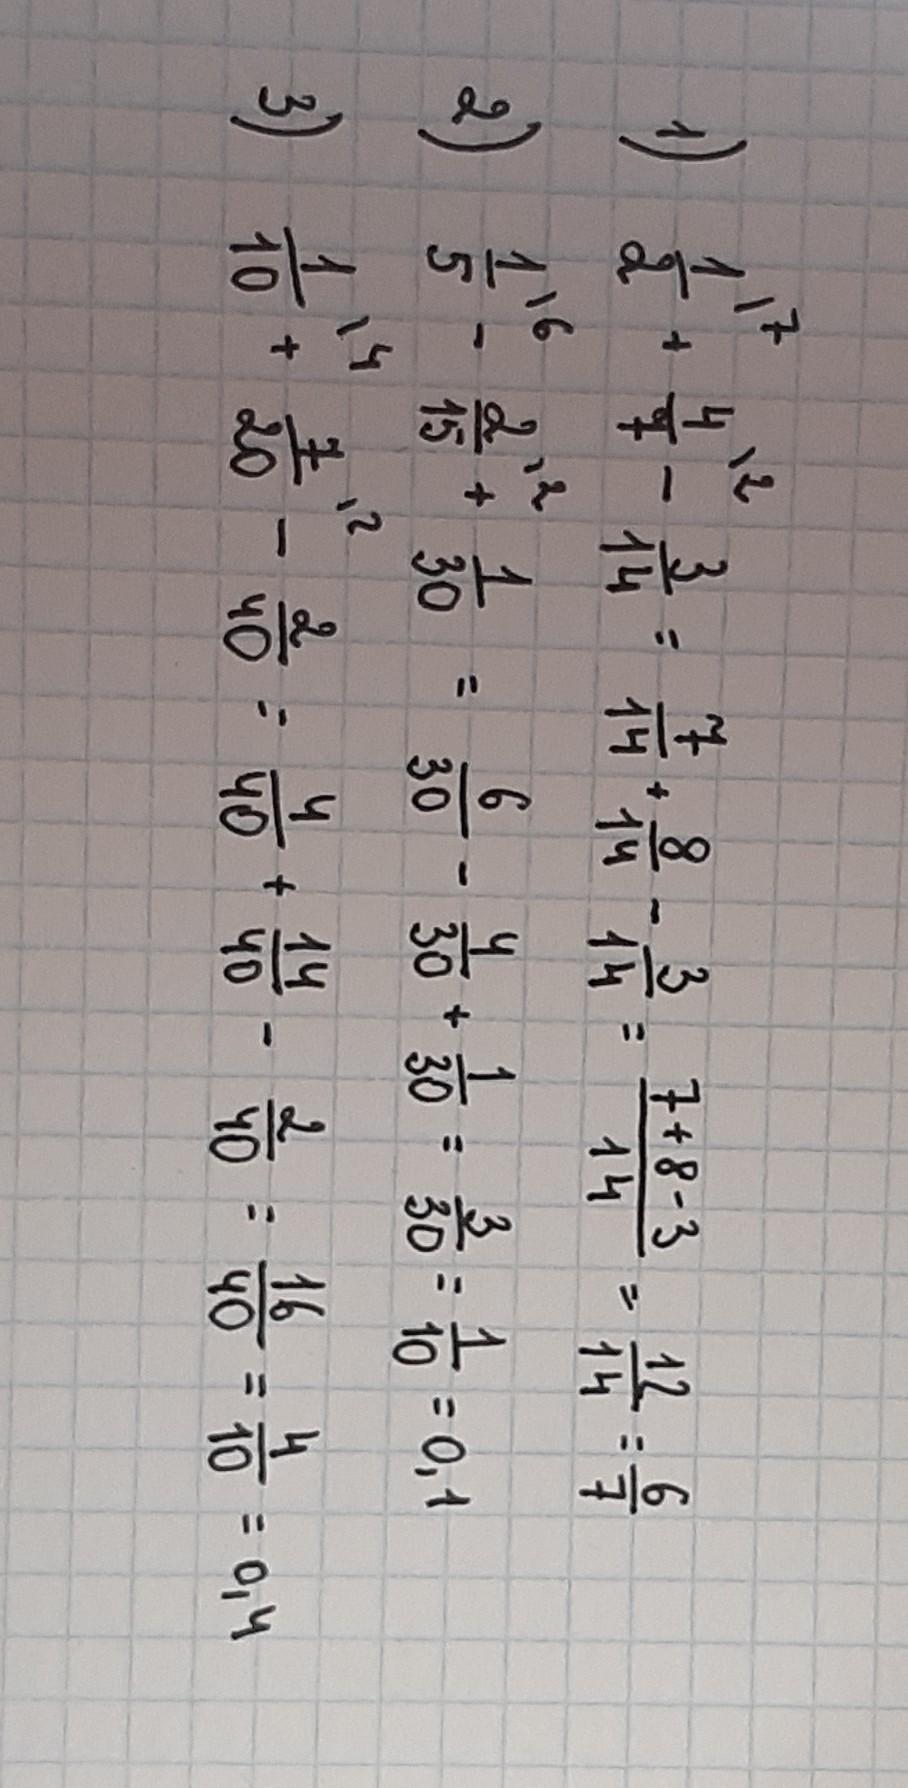 1) 1/2 \7 + 4/7 \2 - 3/14 = 7/14 + 8/14 - 3/14 = (7+8-3)/14 = 12/14 = 6/7
2) 1/5 \6 - 2/15 \2 + 1/30 = 6/30 - 4/30 + 1/30 = 3/30 = 1/10 = 0,1
3) 1/10 \4 + 7/20 \2 - 2/40 = 4/40 + 14/40 - 2/40 = 16/40 = 4/10 = 0,4